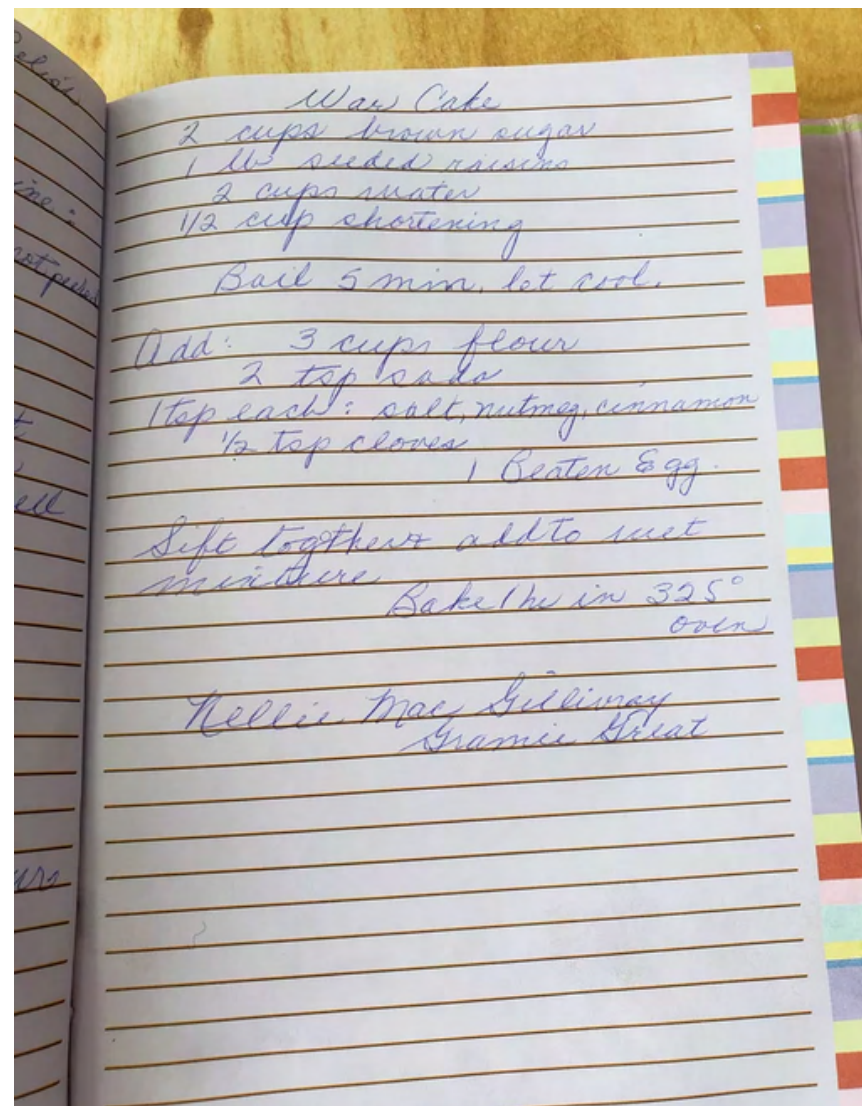 War Cake
2 cups brown sugar
1 lb seeded raisins
2 cups water
1/2 cup shortening
Boil 5 min. let cool.
Add: 3 cups flour
2 tsp soda
1 tsp each: salt, nutmeg, cinnamon
1/2 tsp cloves
1 Beaten Egg.
Sift togther & add to wet
mixture
Bake 1 hr in 325°
oven
Nellie Mac Gillivray
Gramie Great